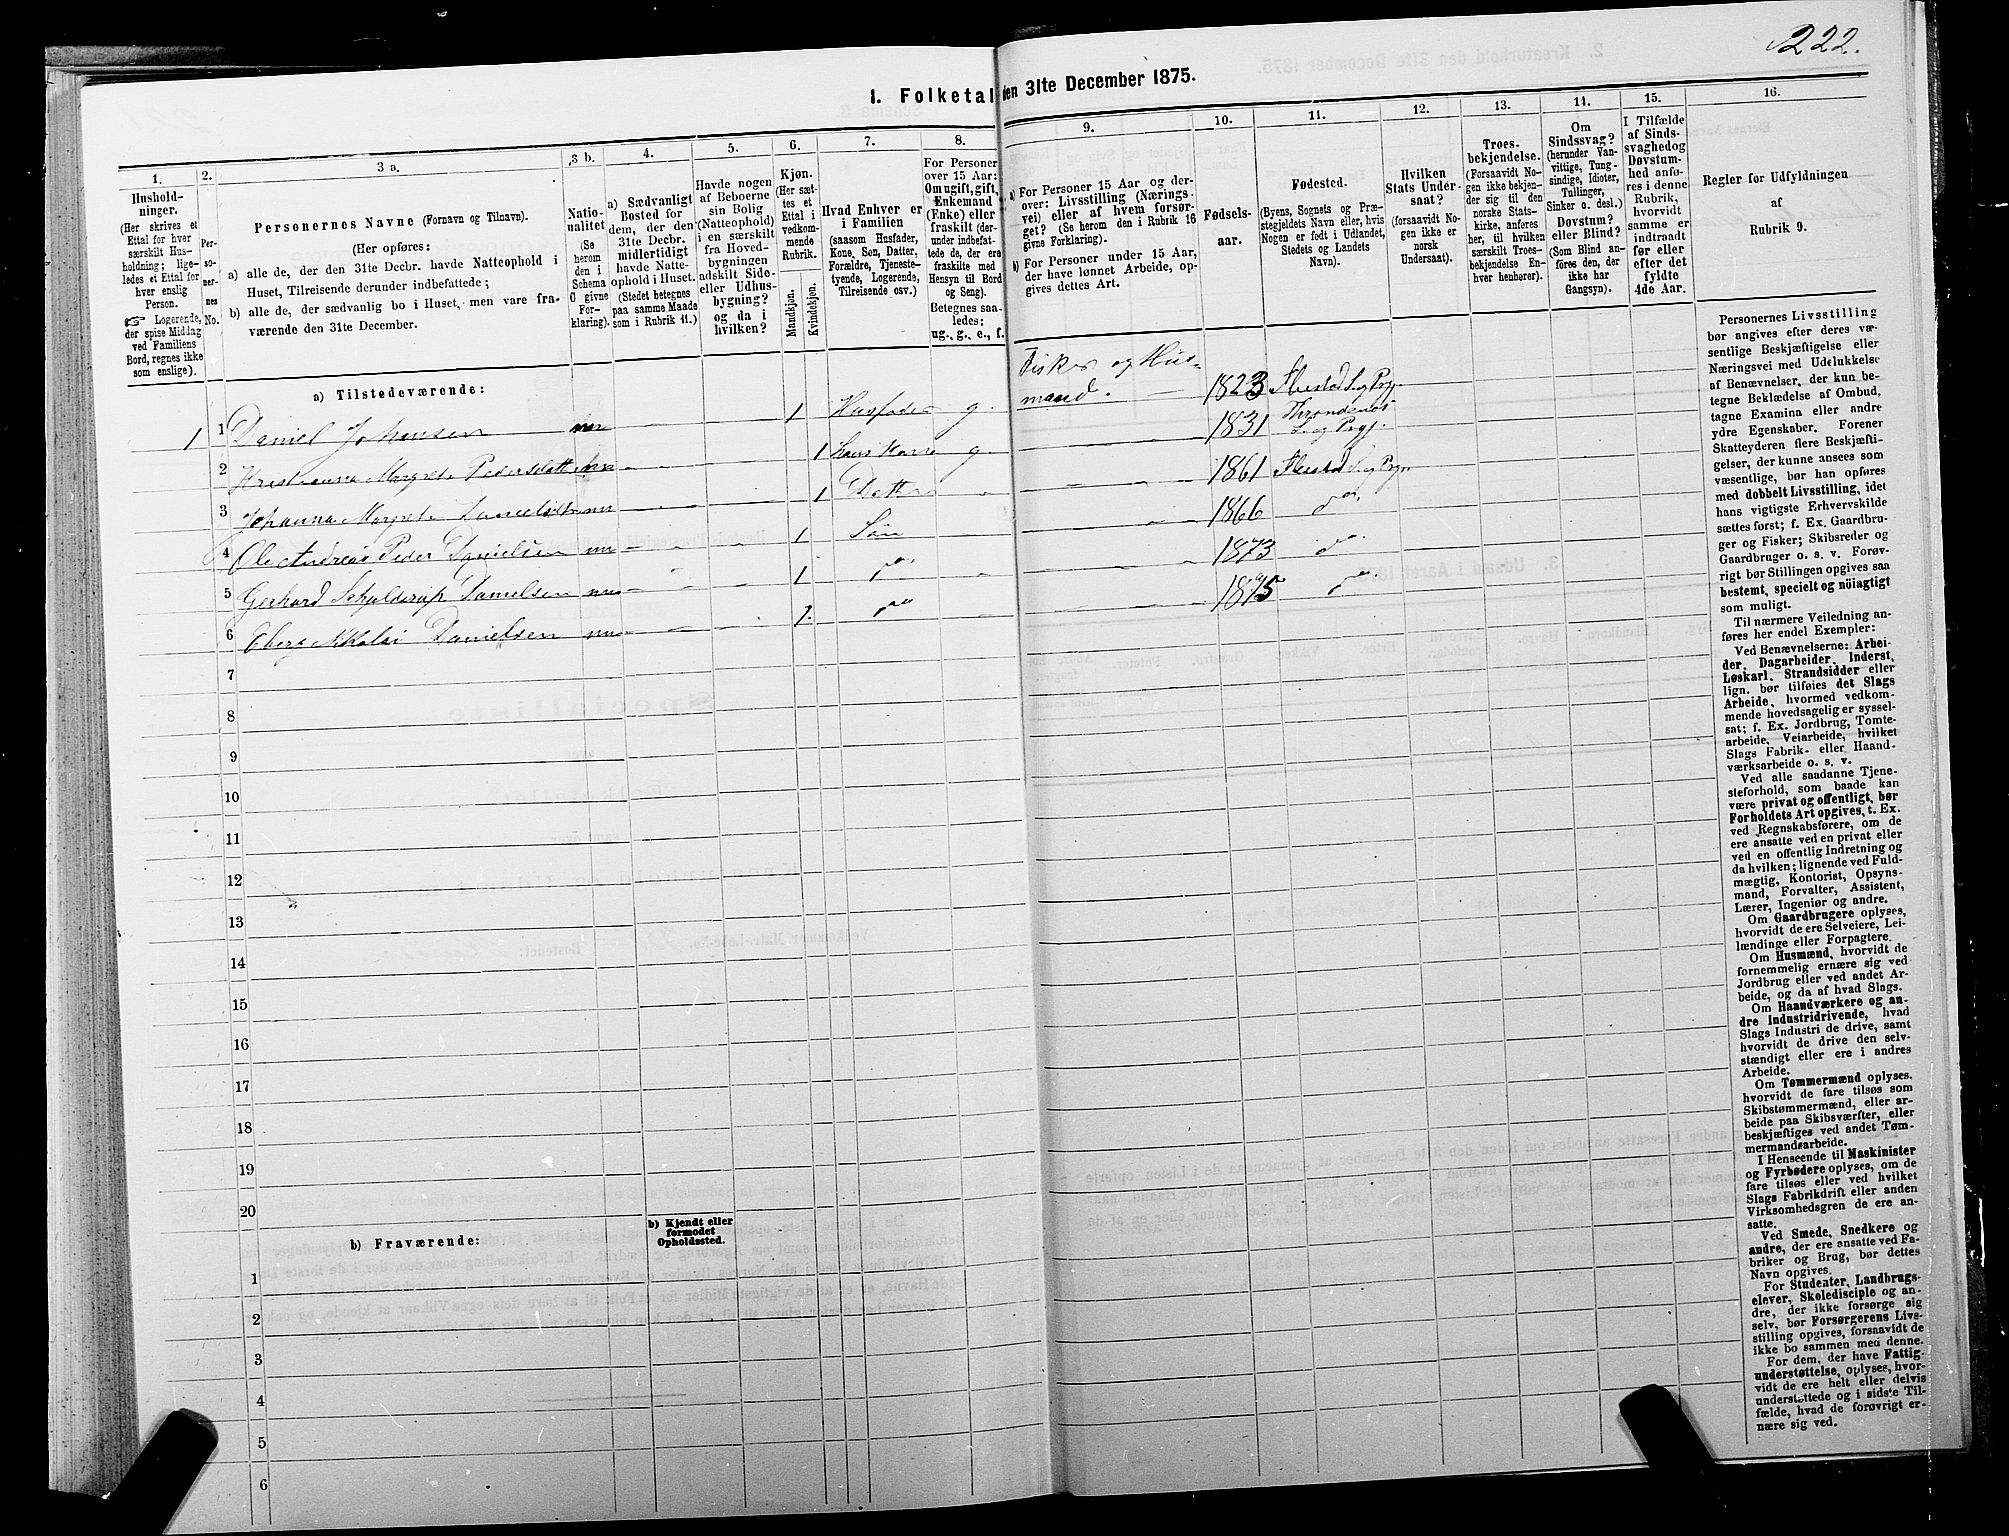 222.
1. Folketal den 31te December 1875.
1.
2.
3 a.
3 b.
4.
5.
6.
7.
8.
9.
10.
11.
12.
13.
14.
15.
16.
Hushold-
ninger.
(Her skrives et
Ettal for hver
særskilt Hus-
holdning; lige-
ledes et Ettal for
hver enslig
Person.
☞ Logerende,
der spise Middag
ved Familiens
Bord, regnes ikke
som enslige).
Per-
so-
ner-
nes
No.
Personernes Navne (Fornavn og Tilnavn).
(Her opføres:
a) alle de, der den 31te Decbr. havde Natteophold i
Huset, Tilreisende derunder indbefattede;
b) alle de, der sædvanlig bo i Huset, men vare fra-
værende den 31te December.
Natio-
nalitet
(Se
herom
den i
Schema
C givne
For-
klaring).
a) Sædvanligt
Bosted for
dem, der den
31te Decbr.
midlertidigt
havde Natte-
ophold i Huset.
(Stedet betegnes
paa samme Maade
som i Rubrik 11.)
Havde nogen
af Beboerne
sin Bolig
(Natteophold)
i en særskilt
fra Hoved-
bygningen
adskilt Side-
eller Udhus-
bygning?
og da i
hvilken?
Kjøn.
(Her sæt-
tes et
Ettal i
vedkom-
mende
Rubrik.
Mandkjøn.
Kvindekjøn.
Hvad Enhver er
i Familien
(saasom Husfader,
Kone, Søn, Datter,
Forældre, Tjeneste-
tyende, Logerende,
Tilreisende osv.)
For Personer
over 15 Aar:
Om ugift, gift,
Enkemand
(Enke) eller
fraskilt (der-
under indbefat-
tede de, der ere
fraskilte med
Hensyn til Bord
og Seng).
Betegnes saa-
ledes:
ug., g., e., f.
a) For Personer 15 Aar og der-
over: Livsstilling (Nærings-
vei) eller af hvem forsør-
get? (Se herom den i Rubrik 16
givne Forklaring).
b) For Personer under 15 Aar,
der have lønnet Arbeide, op-
gives dettes Art.
Fødsels-
aar.
Fødested.
(Byens, Sognets og Præ-
stegjeldets Navn eller, hvis
Nogen er født i Udlandet,
Stedets og Landets
Navn).
Hvilken
Stats Under-
saat?
(forsaavidt No-
gen ikke er
norsk
Undersaat).
Troes-
bekjendelse.
(Forsaavidt No-
gen ikke bekjen-
der sig til den
norske Stats-
kirke, anføres
her, til hvilken
særskilt Troes-
bekjendelse En-
hver henhører).
Om
Sindssvag?
(herunder Van-
vittige, Tung-
sindige, Idioter,
Tullinger,
Sinker o. desl.)
Døvstum?
eller Blind?
(Som Blind an-
føres den, der
ikke har
Gangsyn).
I Tilfælde
af Sinds-
svaghedog
Døvstum-
hed anfø-
res i denne
Rubrik,
hvorvidt
samme er
indtraadt
før eller
efter det
fyldte
4de Aar.
Regler for Udfyldningen
af
Rubrik 9.
a) Tilstedeværende:
Fisker og Hus-
1 1 Daniel Johansen nn 1 Husfader g. mand. 1823 Ibestad S. og Prgj.
2 Kristianna Margrete Pedersdatt. nn 1 hans Kone g. 1831 Throndenæs S. og Prgj.
3 Johanna Margrete Danielsdtr nn 1 Datter 1861 Ibestad S. og Prgj.
4 Ole Andreas Peder Danielsen nn 1 Søn 1866 do.
5 Gerhard Schjelderup Danielsen nn 1 do. 1873 do.
6 Nikolai Danielsen nn 1 do. 1875 do.
7
8
9
10
11
12
13
14
15
16
17
18
19
20
b) Fraværende:
b) Kjendt eller
formodet
Opholdssted.
1
2
3
4
5
6
Personernes Livsstilling
bør angives efter deres væ-
sentlige Beskjæftigelse eller
Næringsvei med Udelukkelse
af Benævnelser, der kun be-
tegne Beklædelse af Ombud,
tagne Examina eller andre
ydre Egenskaber. Forener
Skatteyderen flere Beskjæfti-
gelser, der kunne ansees som
væsentlige, bør han opføres
med dobbelt Livsstilling, idet
hans vigtigste Erhvervskilde
sættes først; f. Ex. Gaardbru-
ger og Fisker; Skibsreder og
Gaardbruger o. s. v. Forøv-
rigt bør Stillingen opgives saa
bestemt, specielt og nöiagtigt
som muligt.
Til nærmere Veiledning an-
føres her endel Exempler:
Ved Benævnelserne: Arbei-
der, Dagarbeider, Inderst,
Løskarl, Strandsidder eller
lign. bør tilføies det Slags
Arbeide, hvormed vedkom-
mende hovedsagelig er syssel-
sat; f. Ex. Jordbrug, Tomte-
arbeide, Veiarbeide, hvilket
Slags Fabrik- eller Haand-
værksarbeide o. s. v.
Ved alle saadanne Tjene-
steforhold, som baade kan
være privat og offentligt, bør
Forholdets Art opgives, t. Ex.
ved Regnskabsførere, om de
ere ansatte ved en privat eller
ved en offentlig Indretning og
da hvilken; lignende ved Fuld-
mægtig, Kontorist, Opsyns-
mand, Forvalter, Assistent,
Lærer, Ingeniør og andre.
Om Gaardbrugere oplyses,
hvorvidt de ere Selveiere, Lei-
lændinge eller Forpagtere.
Om Husmænd, hvorvidt de
fornemmelig ernære sig ved
Jordbrug eller ved andet Ar-
beide, og da af hvad Slags.
Om Haandværkere og an-
dre Industridrivende, hvad
Slags Industri de drive, samt
hvorvidt de drive den selv-
stændigt eller ere i andres
Arbeide.
Om Tømmermænd oplyses,
hvorvidt de fare tilsøs som
Skibstømmermænd, eller ar-
beide paa Skibsværfter, eller
beskjæftiges ved andet Tøm-
mermandsarbeide.
I Henseende til Maskinister
og Fyrbødere oplyses, om de
fare tilsøs eller ved hvilket
Slags Fabrikdrift eller anden
Virksomhedsgren de ere an-
satte.
Ved Smede, Snedkere og
andre, der ere ansatte ved Fa-
briker og Brug, bør dettes
Navn opgives.
For Studenter, Landbrugs-
elever, Skoledisciple og an-
dre, der ikke forsørge sig
selv, bør Forsørgerens Livs-
stilling opgives, forsaavidt de
ikke bo sammen med denne.
For dem, der have Fattig-
understøttelse, oplyses, hvor-
vidt de ere helt eller delvis
understøttede og i sidste Til-
fælde, hvad de forøvrigt er-
nære sig ved.